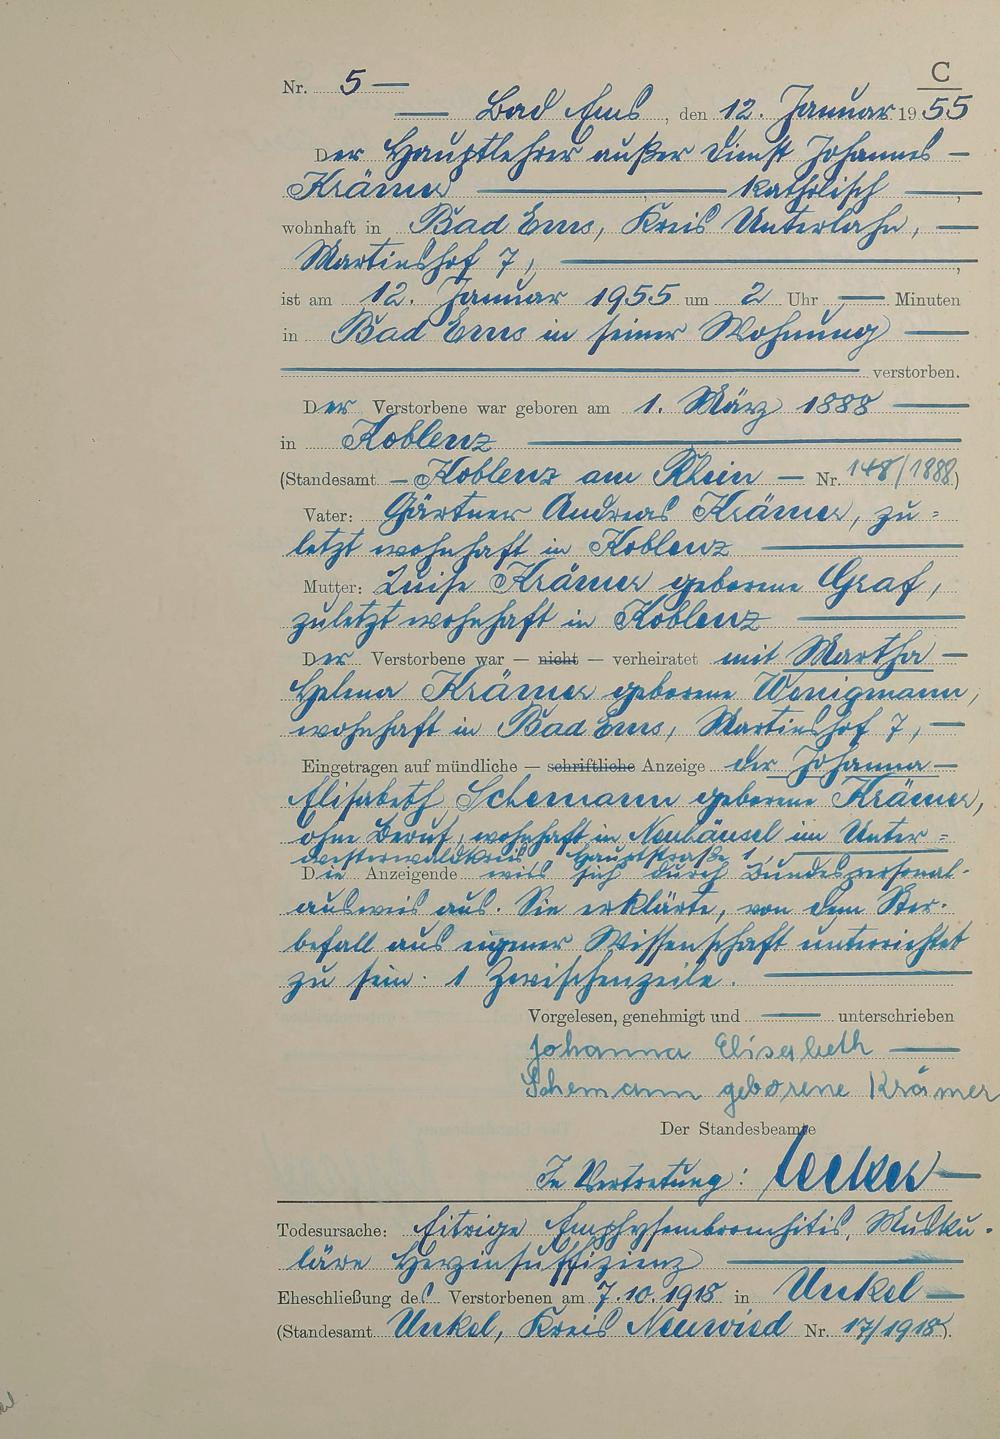 C
Nr. 5 —
— Bad Ems, den 12. Januar 1955
Der Hauptlehrer außer Dienst Johannes —
Krämer — katholisch —,
wohnhaft in Bad Ems, Kreis Unterlahn, —
Martinshof 7, —,
ist am 12. Januar 1955 um 2 Uhr — Minuten
in Bad Ems in seiner Wohnung —
— verstorben.
Der Verstorbene war geboren am 1. März 1888 —
in Koblenz —
(Standesamt — Koblenz am Rhein — Nr. 148/1888)
Vater: Gärtner Andreas Krämer, zu=
letzt wohnhaft in Koblenz —
Mutter: Luise Krämer geborene Graf,
zuletzt wohnhaft in Koblenz —
Der Verstorbene war — nicht — verheiratet mit Martha —
Helena Krämer geborene Wenigmann,
wohnhaft in Bad Ems, Martinshof 7, —
Eingetragen auf mündliche — schriftliche Anzeige der Johanna —
Elisabeth Schemann geborene Krämer,
ohne Beruf, wohnhaft in Neuhäusel im Unter=
westerwaldkreis, Hauptstraße 1, —
Die Anzeigende wies sich durch Bundespersonal-
ausweis aus. Sie erklärte, von dem Ster-
befall aus eigener Wissenschaft unterrichtet
zu sein. 1 Zwischenzeile. —
Vorgelesen, genehmigt und — unterschrieben
Johanna Elisabeth —
Schemann geborene Krämer
Der Standesbeamte
In Vertretung:
Todesursache: Eitrige Emphysembronchitis, Musku-
läre Herzinsuffizienz —
Eheschließung des Verstorbenen am 7.10.1918 in Unkel —
(Standesamt Unkel, Kreis Neuwied Nr. 17/1918).